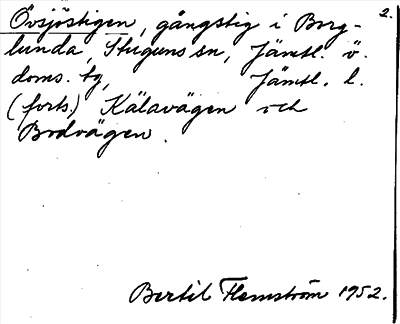 2.
Övsjöstigen, gångstig i Borg-
lunda, Stuguns sn, Jämtl. ö.
doms. tg, Jämtl. l.
(forts.) Kälavägen och
Bodvägen.
Bertil Flemström 1952.